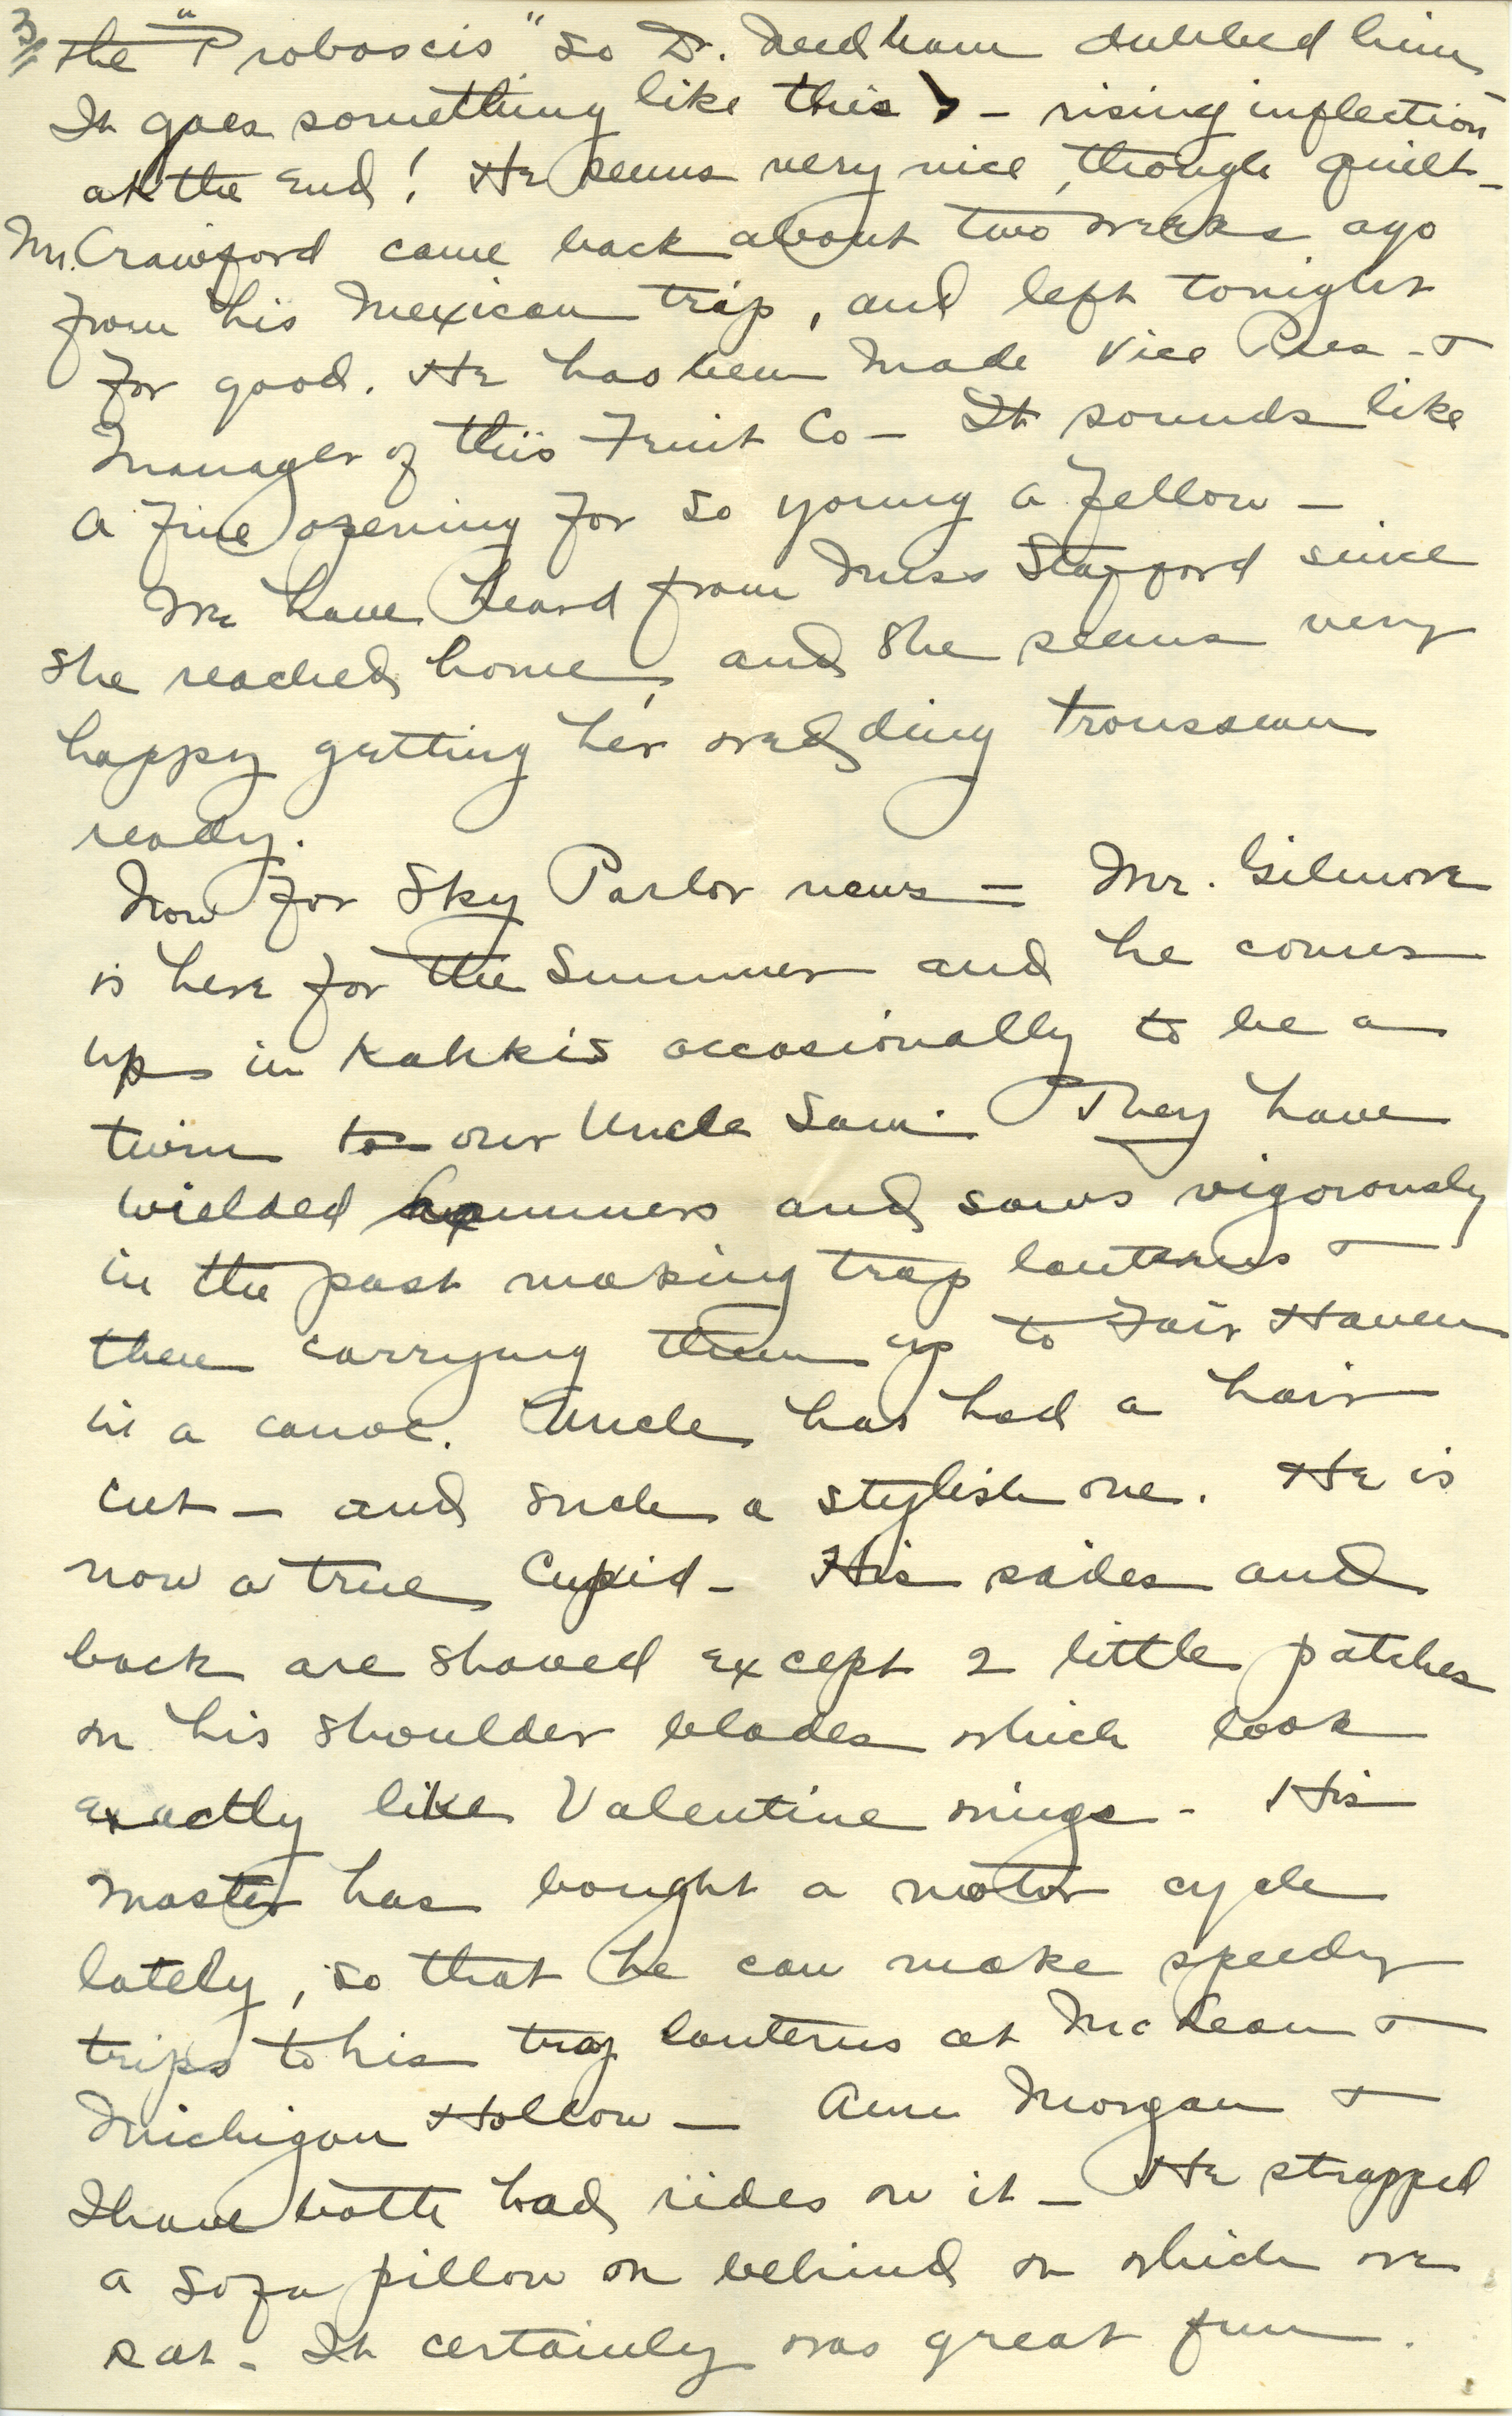 3/ the "Proboscis" so Dr. Needham dubbed him
It goes something like this > – rising inflection
at the End! He seems very nice, though quiet –
Mr. Crawford came back about two weeks ago
from his Mexican trip, and left tonight
for good. He has been made Vice Pres – +
Manager of this Fruit Co – It sounds like
a fine opening for so young a fellow –
We have heard from Miss Stafford since
she reached home, and she seems very
happy getting her wedding trousseau
ready.
Now for Sky Parlor news = Mr. Gilmore
is here for the Summer and he comes
up in Kahkis occasionally to be a
twin to our Uncle Sam. They have
wielded hammers and saws vigorously
in the past making trap lanterns +
then carrying them up to Fair Haven
in a canoe. Uncle has had a hair
cut – and such a stylish one. He is
now a true Cupid – His sides and
back are shaved except 2 little patches
on his shoulder blades which look
exactly like Valentine wings – His
master has bought a motor cycle
lately, so that he can make speedy
trips to his trap lanterns at McLean +
Michigan Hollow – Ann Morgan +
I have both had rides on it – He strapped
a sofa pillow on behind on which we
sat – It certainly was great fun.